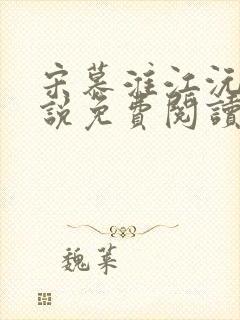 宋慕淮江沅
說免費閱讀
魏葉